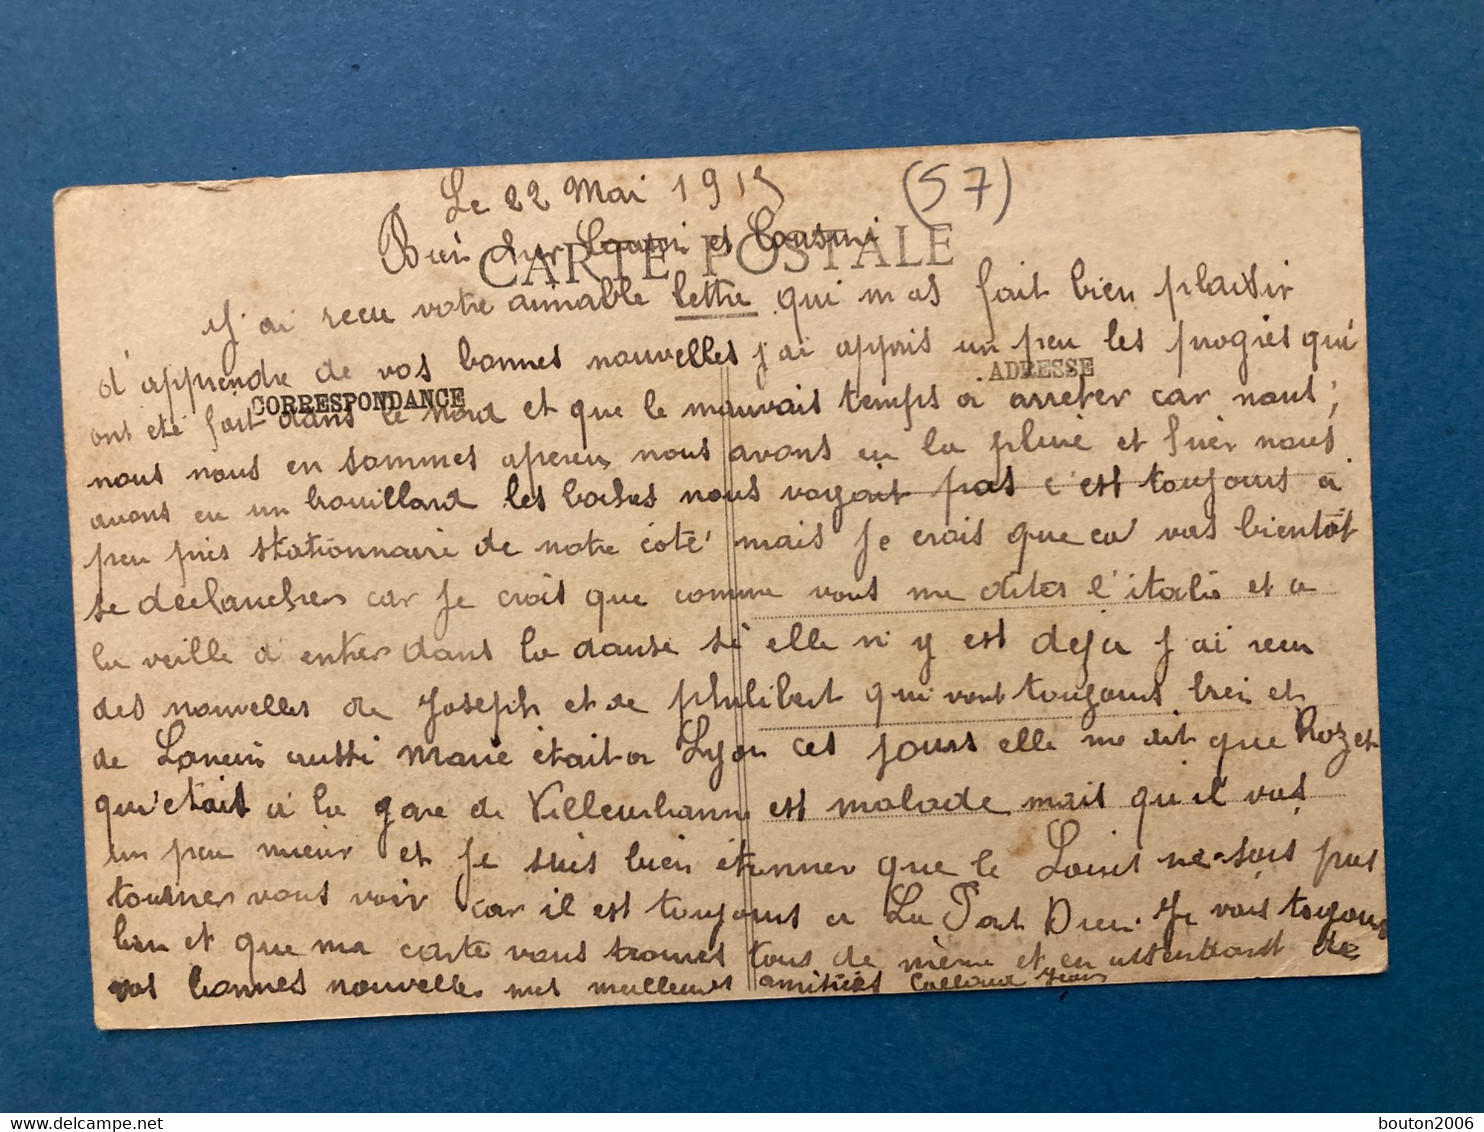 Le 22 Mai 1915
(57)
CARTE POSTALE
Bien cher Cousin et Cousine
J'ai recu votre aimable lettre qui m as fait bien plaisir
d'apprendre de vos bonnes nouvelles j'ai appris un peu les progrès qui
ADRESSE
CORRESPONDANCE
ont eté fait dans le Nord et que le mauvais temps a arreter car nous;
nous nous en sommes apercu nous avons eu la pluie et hier nous
avons eu un brouillard les boches nous voyait pas c'est toujours a
peu près stationnaire de notre coté mais je crois que ca vas bientôt
se declancher car je crois que comme vous me dites l'italie et a
la veille d'entrer dans la danse si elle n'y est deja j'ai recu
des nouvelles de Joseph et de philibert qui vont toujours bien et
de aussi Marie était a Lyon ces jours elle me dit que Rozet
qu'etait a la gare de Villeurbanne est malade mais qu'il vas
un peu mieux et je suis bien étonner que le Louis ne sois pas
tourner vous voir car il est toujours a La Part Dieu. Je vais toujours
bien et que ma carte vous trouves tous de même et en attendant de
vos bonnes nouvelles mes meilleures amitiés Jean
bouton2006